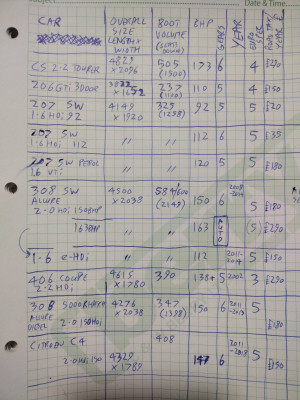 Date & Time
CAR OVERALL SIZE LENGTH WIDTH BOOT VOLUME (SEATS DOWN) BHP GEARS YEAR EURO
C5 2.2 TOURER 4829 x 2096 505 (1500) 173 6 4 £290
206 GTi 3DOOR 237 (1110) 110 5 4 £150
207 SW 4149 325 92 5 5 £20
1.6 HDi 92 x 1920 (1258)
207 SW " " 112 6 5 £35
1.6 HDi 112
207 SW PETROL " " 120 5 5 £180
1.6 VTi
308 SW 4500 x 2038 584/600 (2149) 150 6 2008- 5 £180
ALLURE
2.0 HDi 150BHP
163BHP " " 163 AUTO (5) £290
1.6 e-HDi " " 112 2011- 5
406 COUPE 4615 x 1780 390 138 5 2002 3 £290
2.2 HDi
308 5DOOR HATCH 4276 x 2038 347 (1398) 150 6 2011 5 £180
ALLURE
2.0 150 HDi
CITROEN C4 4329 x 1789 408 147 6 2011 5 £150
2.0 HDi 150